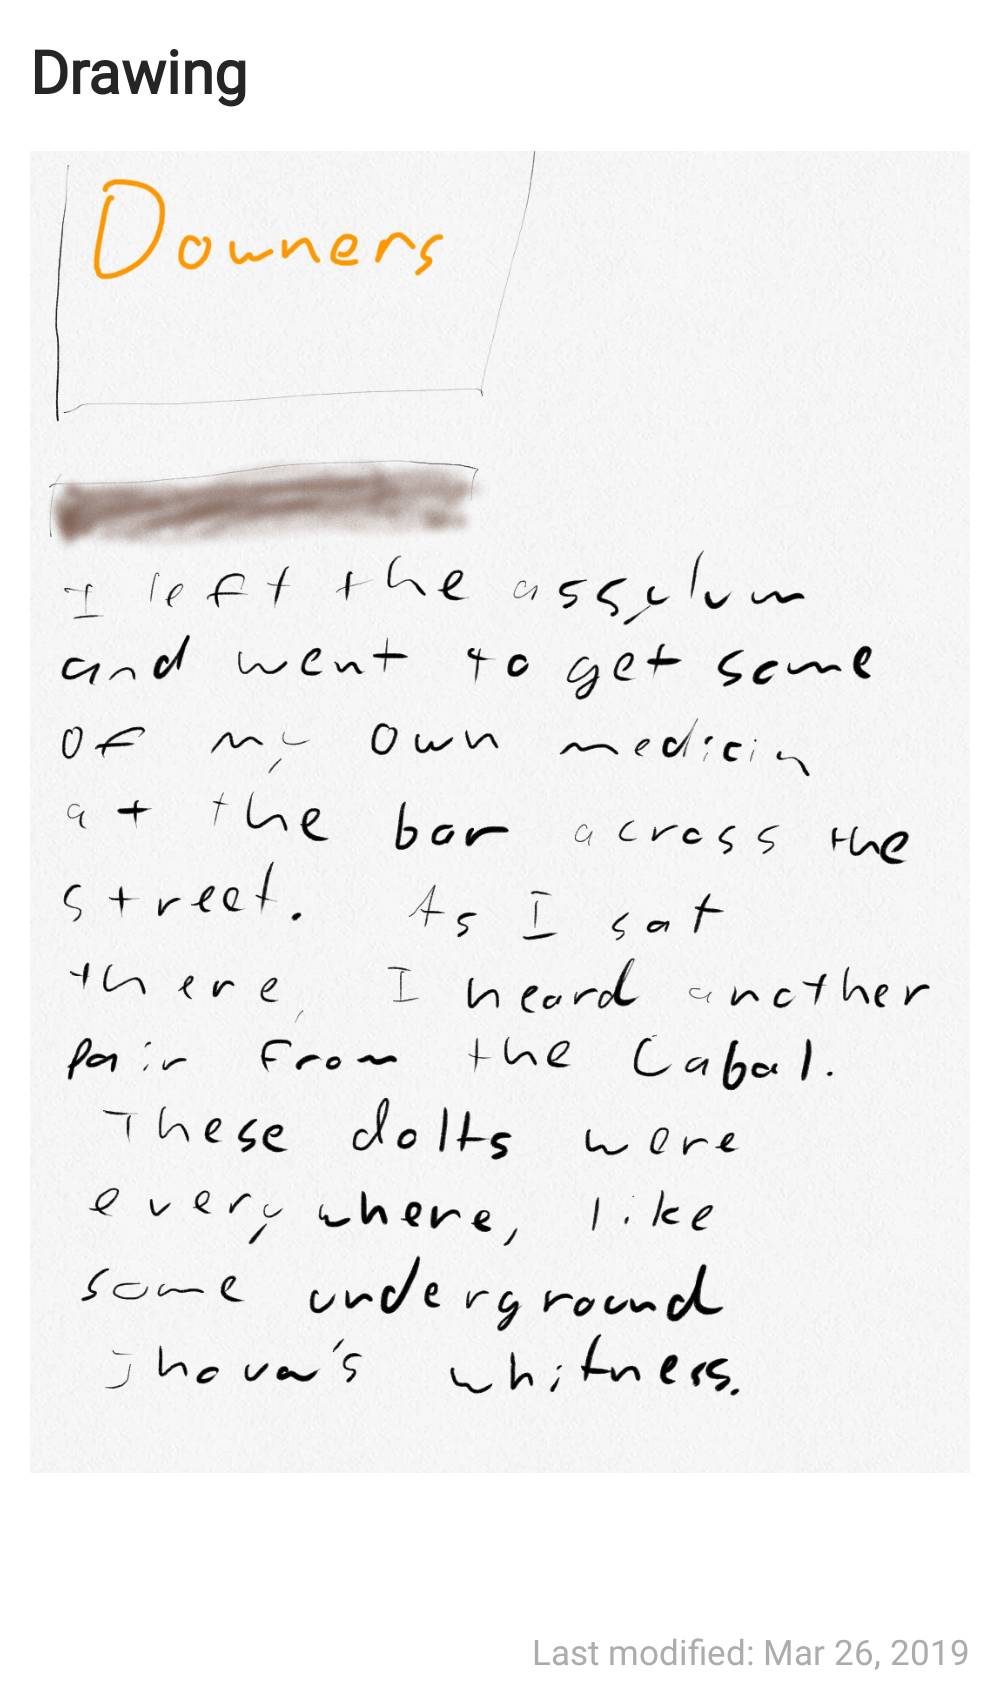 Drawing
Downers
I left the assylum
and went to get some
of my own medicin
at the bar across the
street. As I sat
there, I heard another
pair from the Cabal.
These dolts were
everywhere, like
some underground
jhova's whitness.
Last modified: Mar 26, 2019